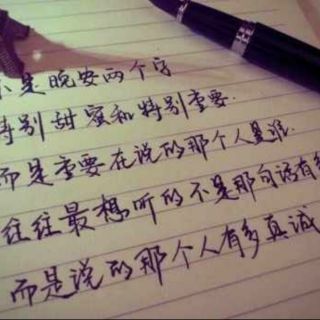 不是晚安两个字
特别甜蜜和特别重要.
而是重要在说的那个人是谁.
往往最想听的不是那句话有多
而是说的那个人有多真诚